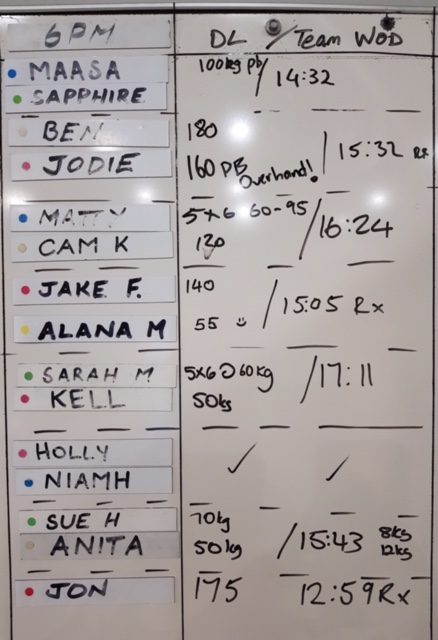 6PM DL / Team WOD
MAASA 100kg Pb / 14:32
SAPPHIRE
BEN 180
JODIE 160 PB Overhand! / 15:32 Rx
MATTY 5x6 60-95 / 16:24
CAM K 120
JAKE F. 140 / 15:05 Rx
ALANA M 55
SARAH M 5x6 @ 60kg / 17:11
KELL 50kg
HOLLY ✓ ✓
NIAMH
SUE H 70kg / 15:43 8kg
ANITA 50kg 12kg
JON 175 12:59 Rx